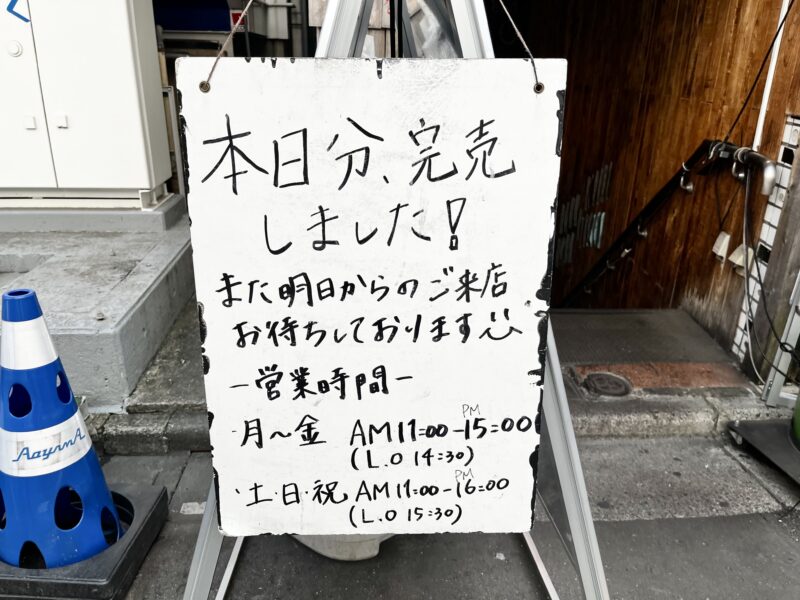 本日分、完売
しました!
また明日からのご来店
お待ちしております
-営業時間-
・月〜金 AM11:00-PM15:00
(L.O 14:30)
・土・日・祝 AM11:00-PM16:00
(L.O 15:30)